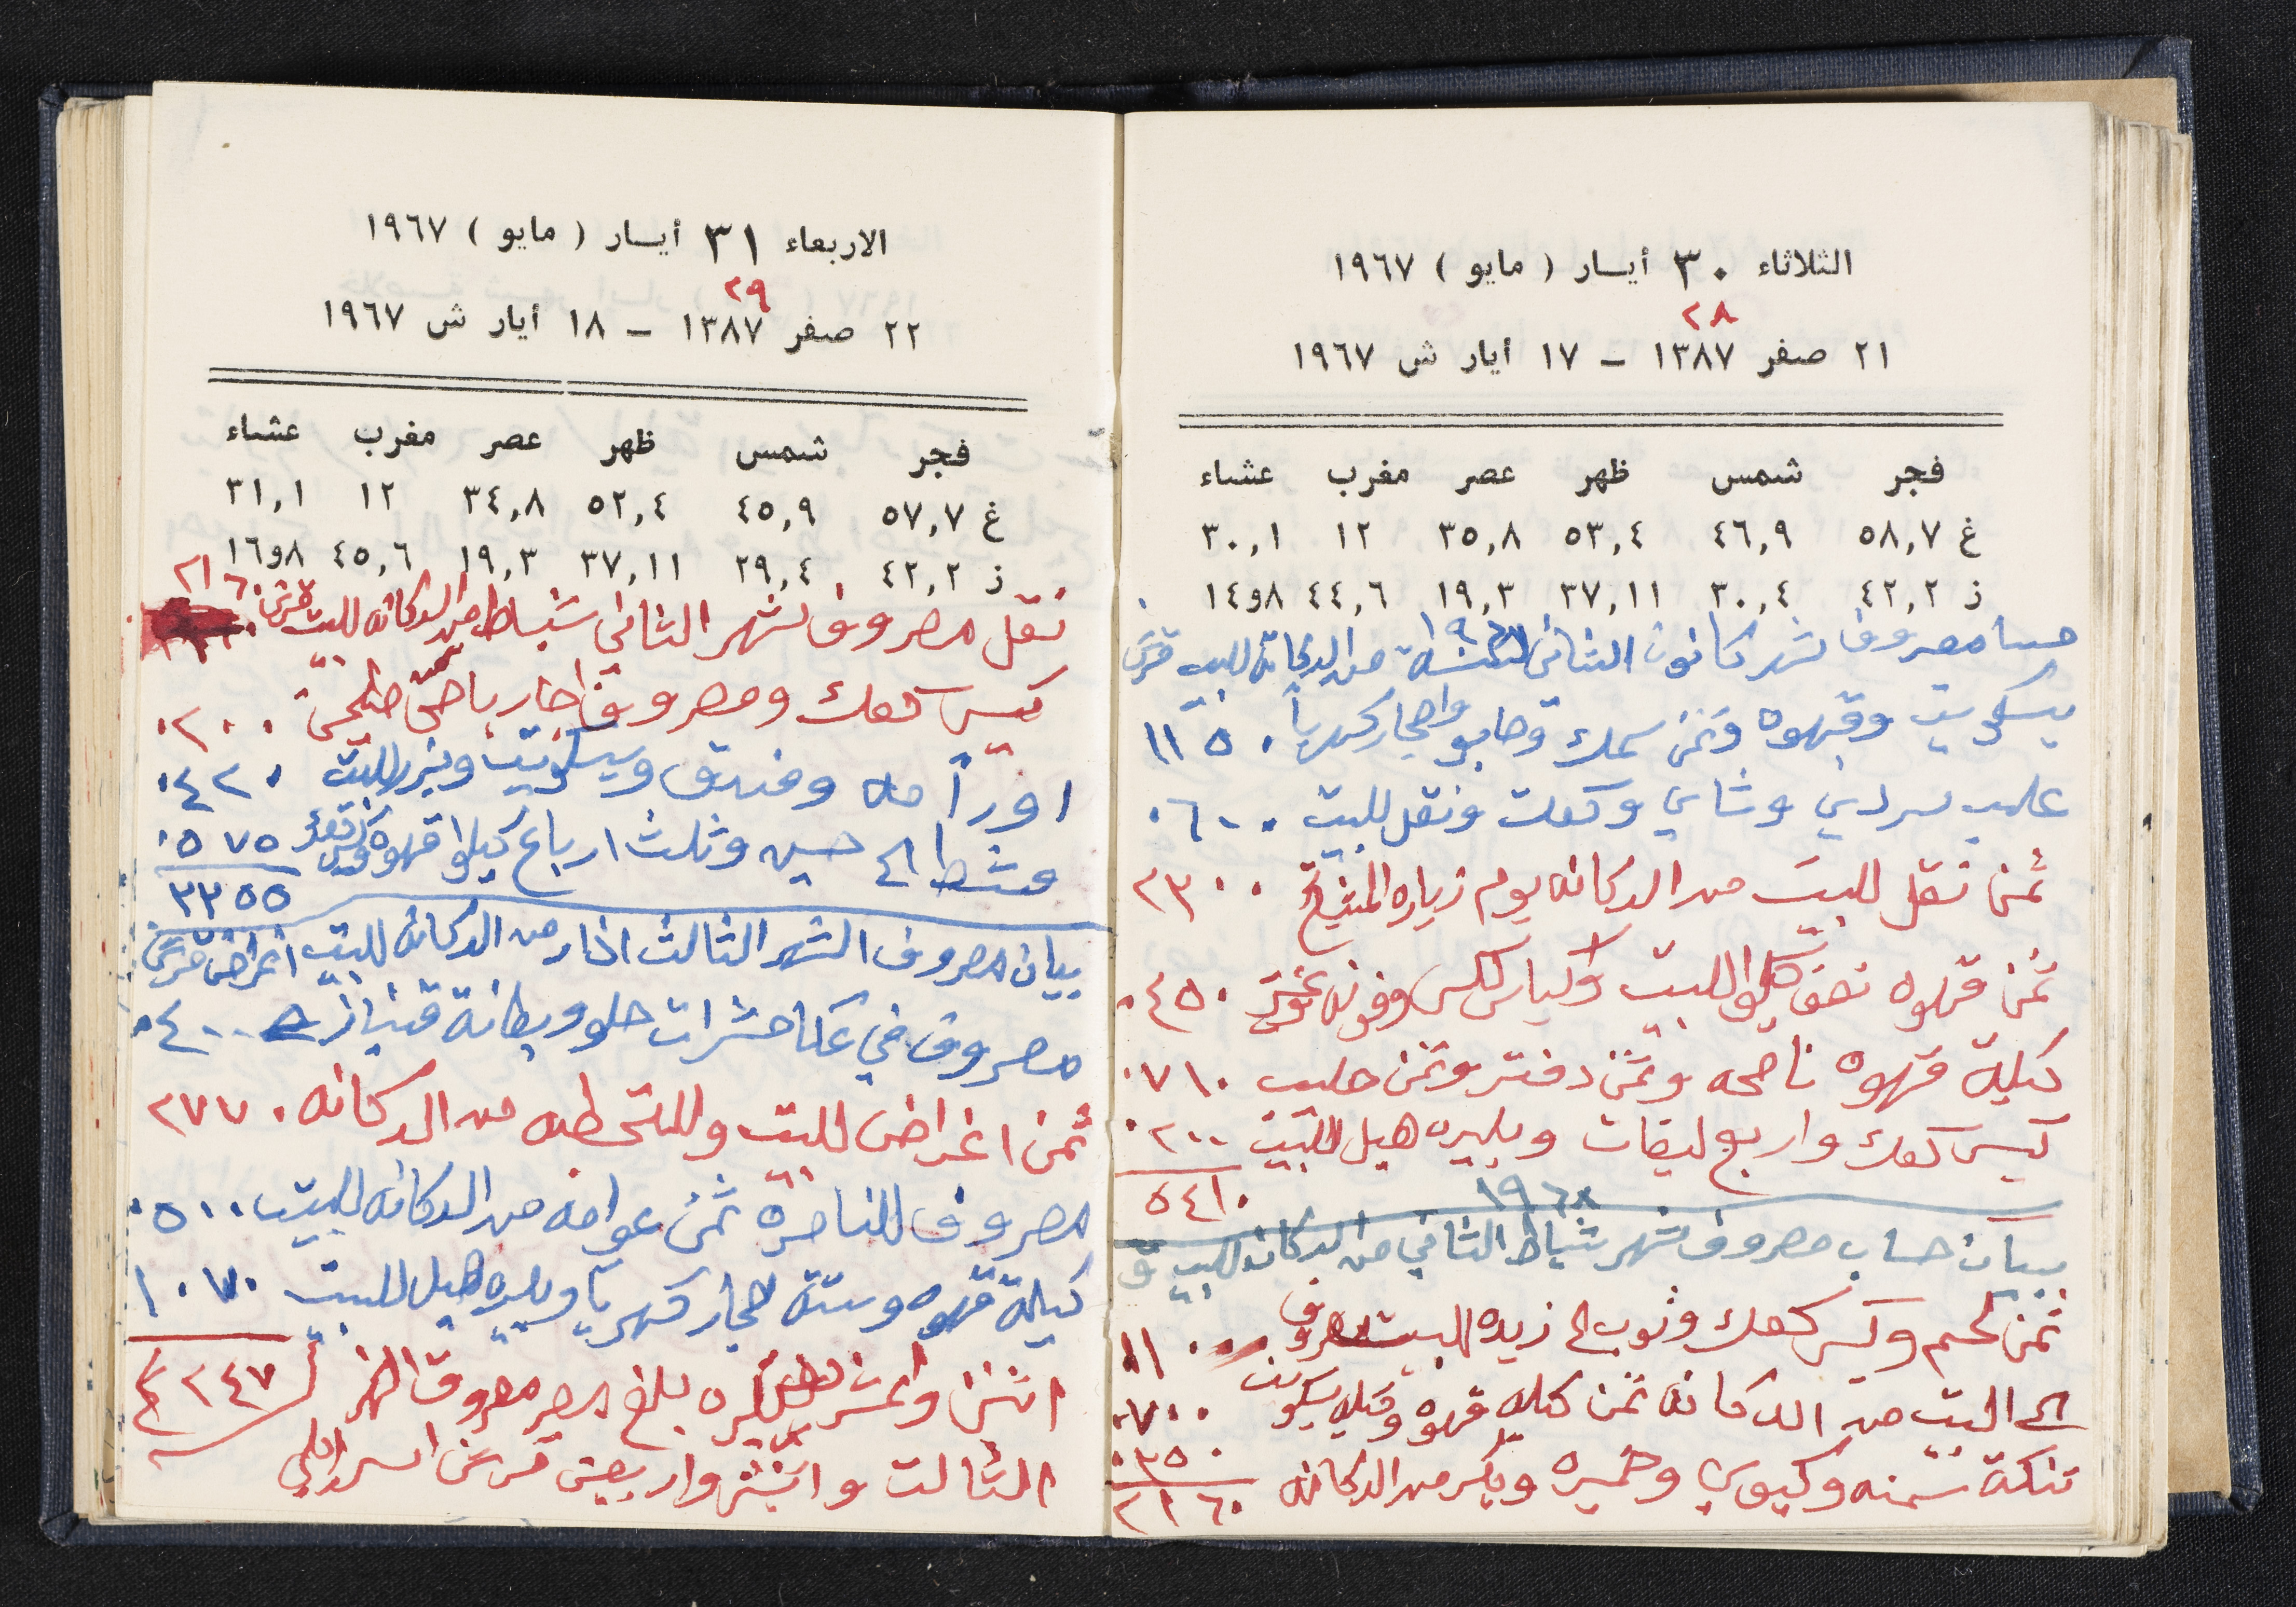 الثلاثاء ٣٠ أيسار ( مايو ) ١٩٦٧
٢٨
٢١ صفر ١٣٨٧ – ١٧ أيار ش ١٩٦٧
فجر شمس ظهر عصر مغرب عشاء
غ ٥٨,٧ ٤٦,٩ ٥٣,٤ ٣٥,٨ ١٢ ٣٠,١
ز ٤٢,٢ ٣٠,٤ ٣٧,١١ ١٩,٣ ٤٤,٦ ٨و١٤
مصروف شهر كانون الثاني من الدكانه للبيت قرش
بيسكويت وقهوه وثمن سمك وصابو واحجار كهربا ١١٥٠
علب سردين وشاي وكعك ونقل للبيت ٠٦٠٠
ثمن نقل للبيت من الدكانه يوم زياره الشيخ ٢٣٠٠
ثمن قهوه نصف كيلوا للبيت واكياس ٠٤٥٠
كيلة قهوه ناصحه وثمن دفتر وثمن حليب ٠٧١٠
كيس كعك واربع ليفات وبليره هيل للبيت ٠٢٠٠
٥٤١٠
١٩٦٨
بيان حساب مصروف شهر شباط الثاني من الدكانه للبيت ق
ثمن لحم وكيس كعك وثوب الى زيده للبيت مصروف ١١٠٠
الى البيت من الدكانه ثمن كيله قهوه وكيله بيسكويت ٠٧٠٠
تنكة سمنه وكيوي وخميره وبكر من الدكانه ٠٣٥٠
٢١٦٠
الاربعاء ٣١ أيسار ( مايو ) ١٩٦٧
٢٩
٢٢ صفر ١٣٨٧ – ١٨ أيار ش ١٩٦٧
فجر شمس ظهر عصر مغرب عشاء
غ ٥٧,٧ ٤٥,٩ ٥٢,٤ ٣٤,٨ ١٢ ٣١,١
ز ٤٢,٢ ٢٩,٤ ٣٧,١١ ١٩,٣ ٤٥,٦ ٨و١٦
نقل مصروف شهر الثاني شباط من الدكانه للبيت قرش ٢١٦٠
كيس كعك ومصروف ٠٢٠٠
وفندق وبيسكويت وبزر للبيت ٠٤٢٠
مشط الى حسين وثلث ارباع كيلوا قهوه وكيس كعك ٠٥٧٥
٣٣٥٥
بيان مصروف الشهر الثالث اذار من الدكانه للبيت اغراض قرش
مصروف في عكا حلو وبطانة قنباز ٠٤٠٠
ثمن اغراض للبيت وللمحطه من الدكانه ٢٧٧٠
مصروف للناصره ثمن عوامه من الدكانه للبيت ٠٥٠٠
كيلة قهوه وستة احجار كهربا وبليره هيل للبيت ١٠٧٠
بلغ مصروف الشهر
الثالث واثنين واربعين قرش اسرائيلي